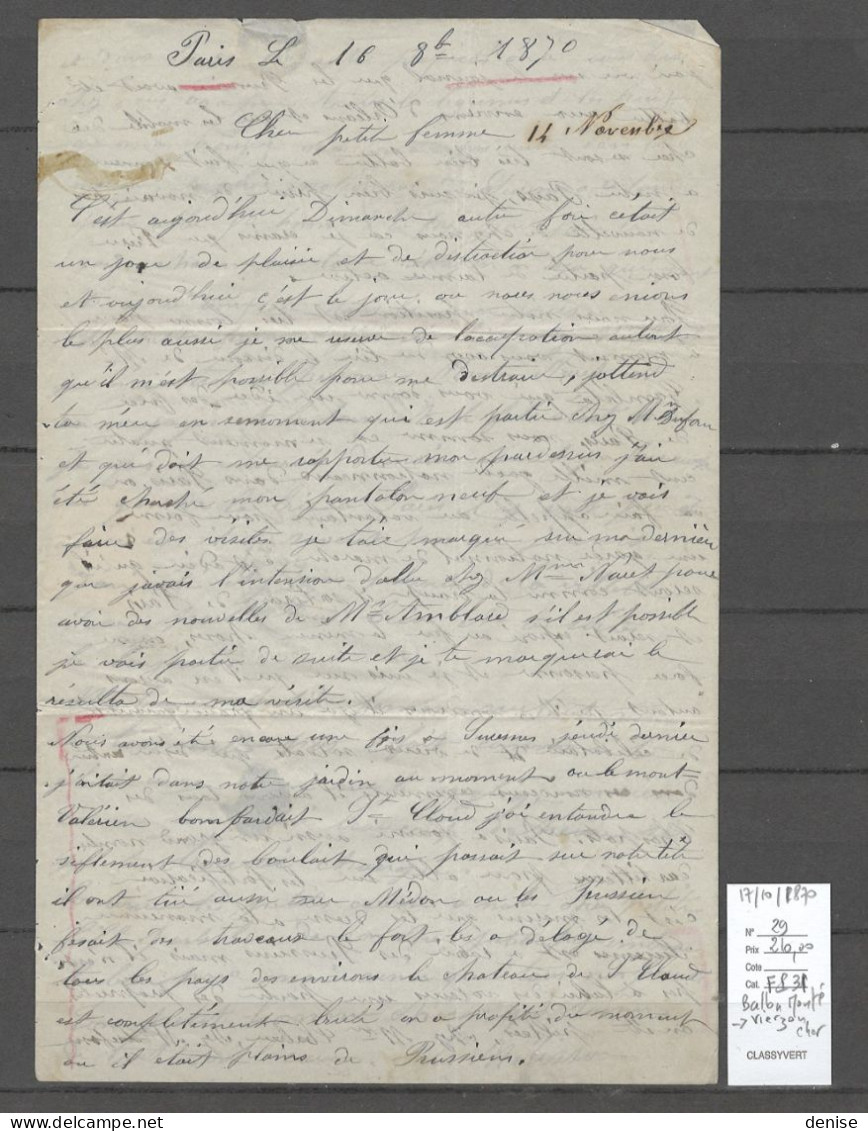 Paris Le 16 8b 1870
Cher petit femme 14 Novembre
C'est aujourd'hui Dimanche autre fois cetait
un jour de plaisir et de distraction pour nous
et aujourd'hui c'est le jour ou nous nous enuions
le plus aussi je me reserve de l'occupation autant
qu'il m'est possible pour me distraire, j'attend
ta mère en semoment qui est partie chez M
et qui doit me rapporter mon pardessus j'ai
été cherché mon pantalon neuf et je vais
faire des visites je t'ais marqué sur ma dernière
que j'avais l'intension d'aller chez Mme Naret pour
avoir des nouvelles de Mr Amblard s'il est possible
je vais partir de suite et je te marquerai le
résulta de ma visite.
Nous avons été encore une fois a Suresnes, jeudi dernier
j'était dans notre jardin au moment ou le mont
Valérien bombardait St Cloud j'ai entandre le
siflement des boulait qui passait sur notre tête
il ont tiré aussi sur Médon ou les Prussien
fesait des travaux le fort les a délogé de
tous les pays des environs le chateau de St Cloud
est completement brulé on a profité du moment
ou il était plains de Prussiens.
17/10/1870
N° 29
Prix 26,00
Cote
Cat.
Ballon Monté
→ Vierzon
Cher
CLASSYVERT
denise